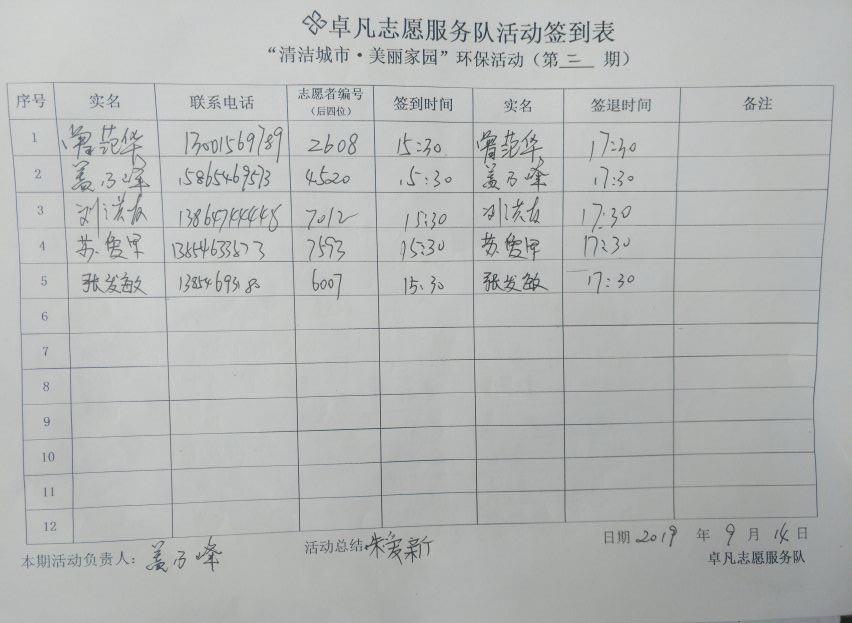 卓凡志愿服务队活动签到表
“清洁城市·美丽家园”环保活动（第 三 期）
序号 实名 联系电话 志愿者编号（后四位） 签到时间 实名 签退时间 备注
1 曾范华 13001569789 2608 15:30 曾范华 17:30
2 盖乃峰 15865469573 4520 15:30 盖乃峰 17:30
3 刘洪友 13864744448 7012 15:30 刘洪友 17:30
4 苏 7593 15:30 苏 17:30
5 张发敏 13854693180 6007 15:30 张发敏 17:30
6
7
8
9
10
11
12
日期 2019 年 9 月 14 日
本期活动负责人： 盖乃峰 活动总结 朱爱新 卓凡志愿服务队